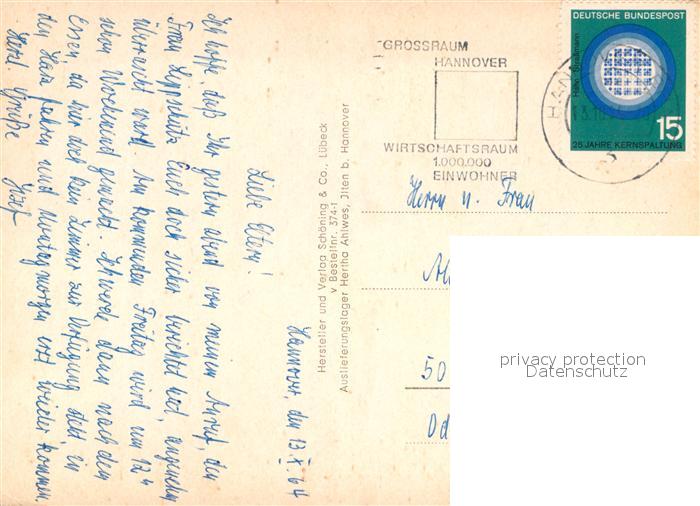 Hannover, den 13.X.64
Liebe Eltern!
Ich hoffe daß Ihr gestern abend von meinem Anruf, den
Frau Lippschütz Euch doch sicher berichtet hat, angenehm
überrascht wart. Am kommenden Freitag wird um 12 h
schon Wochenend gemacht. Ich werde dann nach dem
Essen da hier doch kein Zimmer zur Verfügung steht, in
den Harz fahren und Montagmorgen erst wieder kommen.
Herzl. Grüße
Hersteller und Verlag Schöning & Co., Lübeck
v Bestellnr. 374-1
Auslieferungslager Hertha Ahlwes, Ilten b. Hannover
GROSSRAUM
HANNOVER
WIRTSCHAFTSRAUM
1.000.000
EINWOHNER
DEUTSCHE BUNDESPOST
Hahn Straßmann
15
25 JAHRE KERNSPALTUNG
Herrn u. Frau
50
Od
privacy protection
Datenschutz